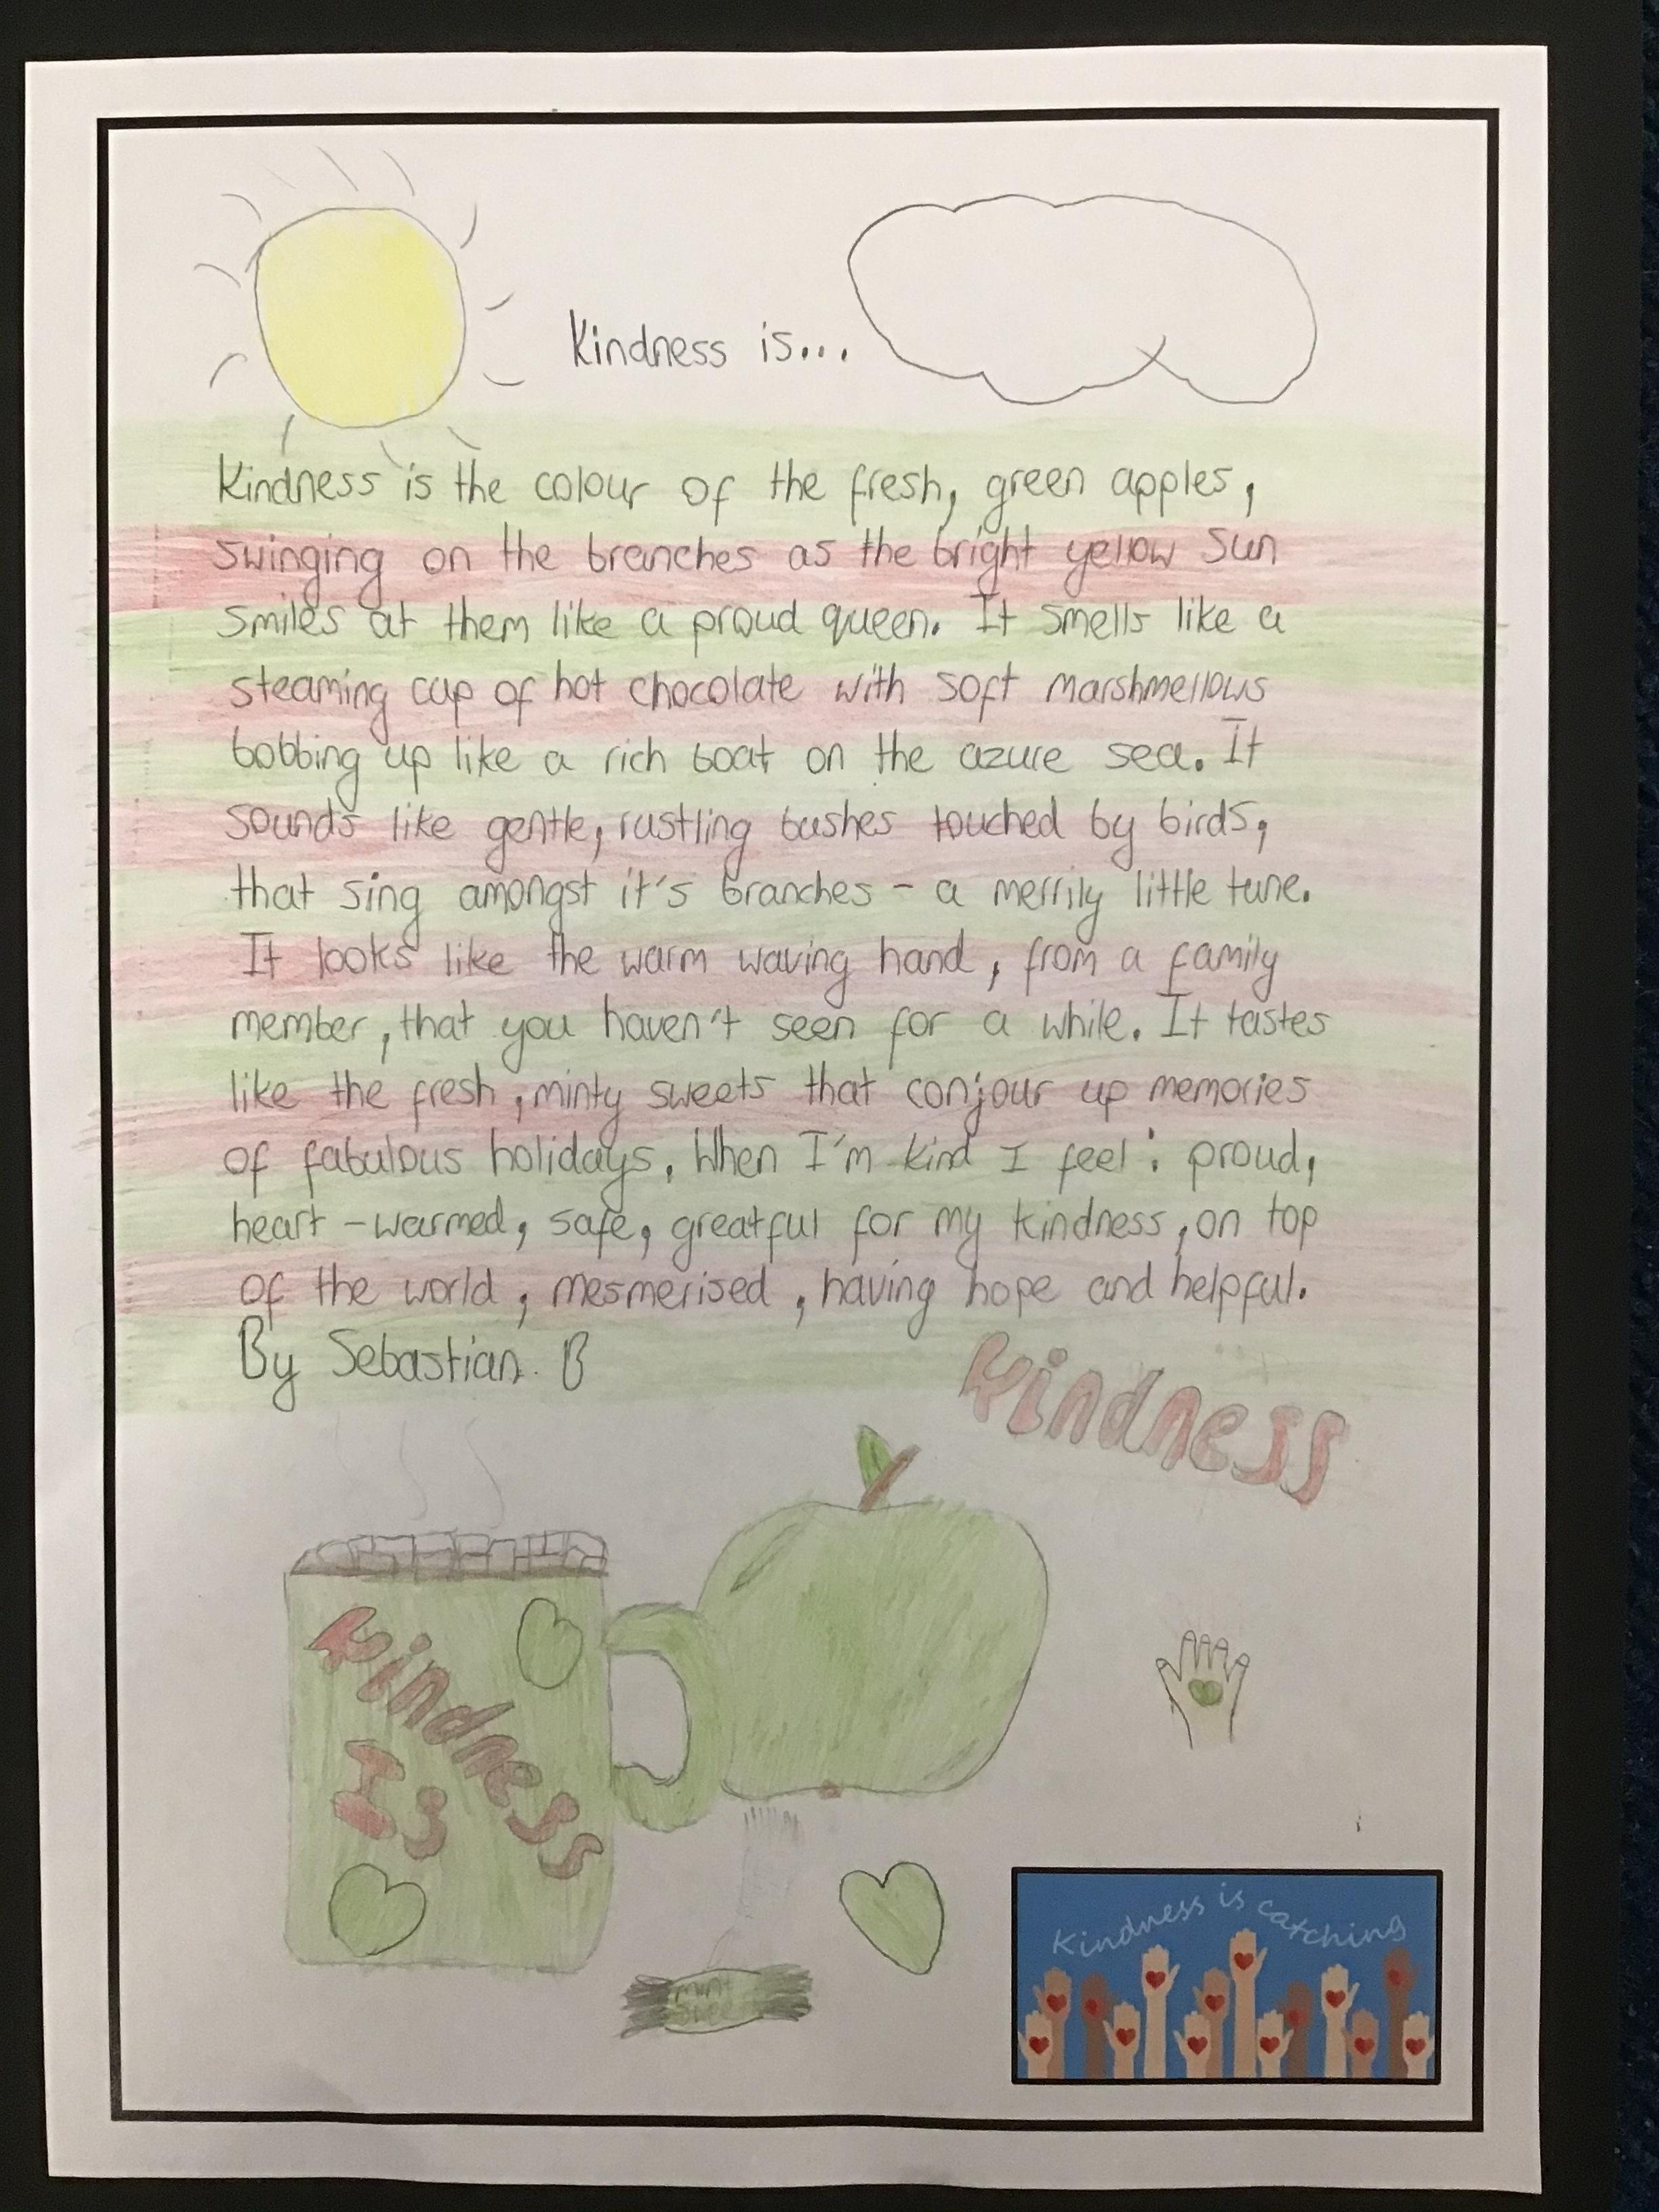 Kindness is...
Kindness is the colour of the fresh, green apples,
swinging on the branches as the bright yellow sun
smiles at them like a proud queen. It smells like a
steaming cup of hot chocolate with soft marshmellows
bobbing up like a rich boat on the azure sea. It
sounds like gentle, rustling bushes touched by birds,
that sing amongst it's branches - a merrily little tune.
It looks like the warm waving hand, from a family
member, that you haven't seen for a while. It tastes
like the fresh, minty sweets that conjour up memories
of fabulous holidays. When I'm kind I feel: proud,
heart-warmed, safe, greatful for my kindness, on top
of the world, mesmerised, having hope and helpful.
By Sebastian. B
Kindness
Kindness
Is
mint
Kindness is catching